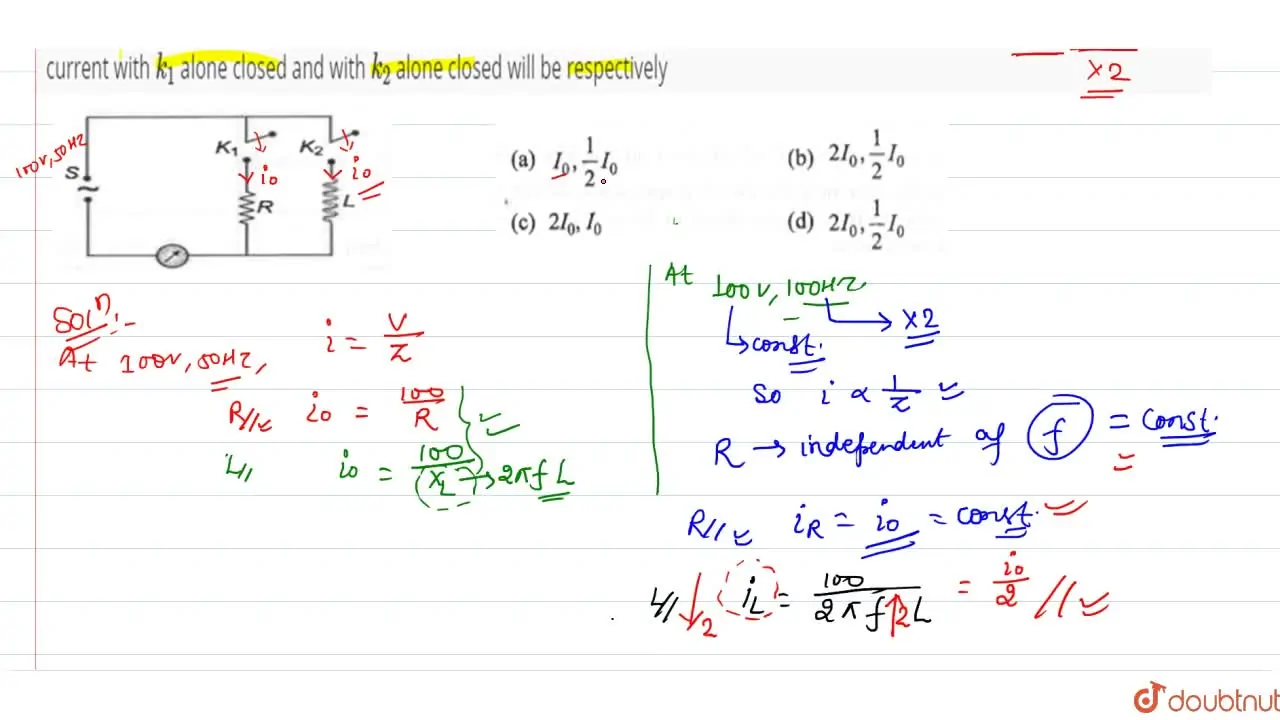 current with k₁ alone closed and with k₂ alone closed will be respectively
×2
100V, 50HZ
S
K₁
K₂
i₀
i₀
R
L
(a) I₀, 1/2 I₀
(b) 2I₀, 1/2 I₀
(c) 2I₀, I₀
(d) 2I₀, 1/2 I₀
Solⁿ:-
At 100V, 50HZ,
i = V/Z
R// i₀ = 100/R
L// i₀ = 100/X_L → 2πfL
At 100V, 100HZ
→ const.
→ ×2
So i ∝ 1/Z
R → independent of f = const.
R// i_R = i₀ = const.
L// ↓2 i_L = 100/2πf↑2L = i₀/2 //
doubtnut